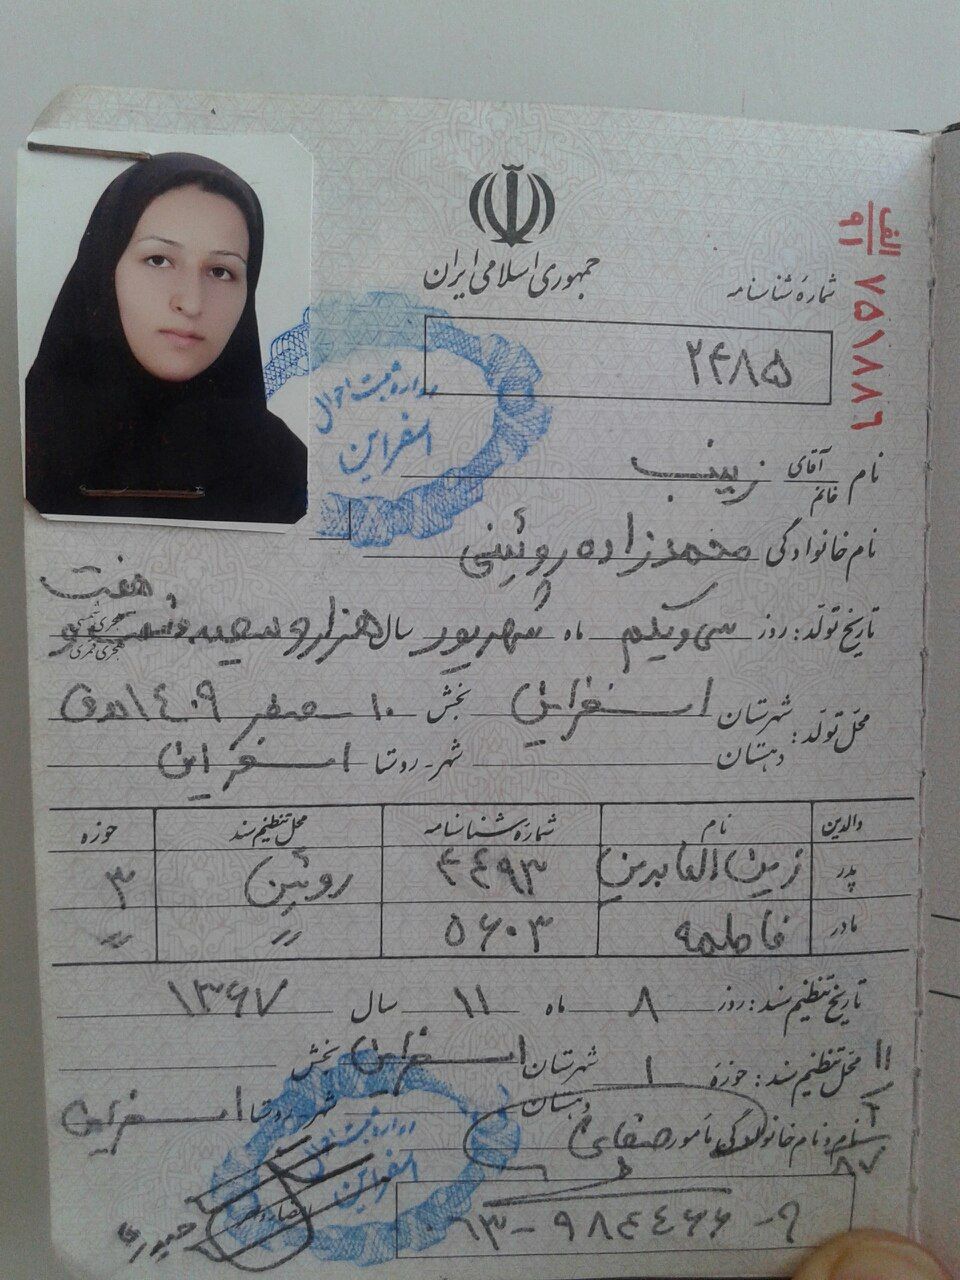 جمهوری اسلامی ایران
الف
۹۱
۷۵۱۸۸۶
شمارهٔ شناسنامه
۲۴۸۵
اداره ثبت احوال
اسفراین
نام آقای خانم زینب
نام خانوادگی محمدزاده روئینی
هفت
تاریخ تولد: روز سی و یکم ماه شهریور سال هزار و سیصد و شصت و هجری شمسی هجری قمری
محل تولد: شهرستان اسفراین بخش ۱۰ صفر ۱۴۰۹ ه ق
دهستان شهر - روستا اسفراین
والدین نام شمارهٔ شناسنامه محل تنظیم سند حوزه
پدر زین العابدین ۴۴۹۳ روئین ۳
مادر فاطمه ۵۶۰۳ " "
تاریخ تنظیم سند: روز ۸ ماه ۱۱ سال ۱۳۶۷
محل تنظیم سند: حوزه ۱ شهرستان اسفراین بخش
دهستان شهر - روستا اسفراین
نام و نام خانوادگی مأمور
اداره ثبت احوال
اسفراین
۰۶۳-۹۸۴۴۶۶-۹